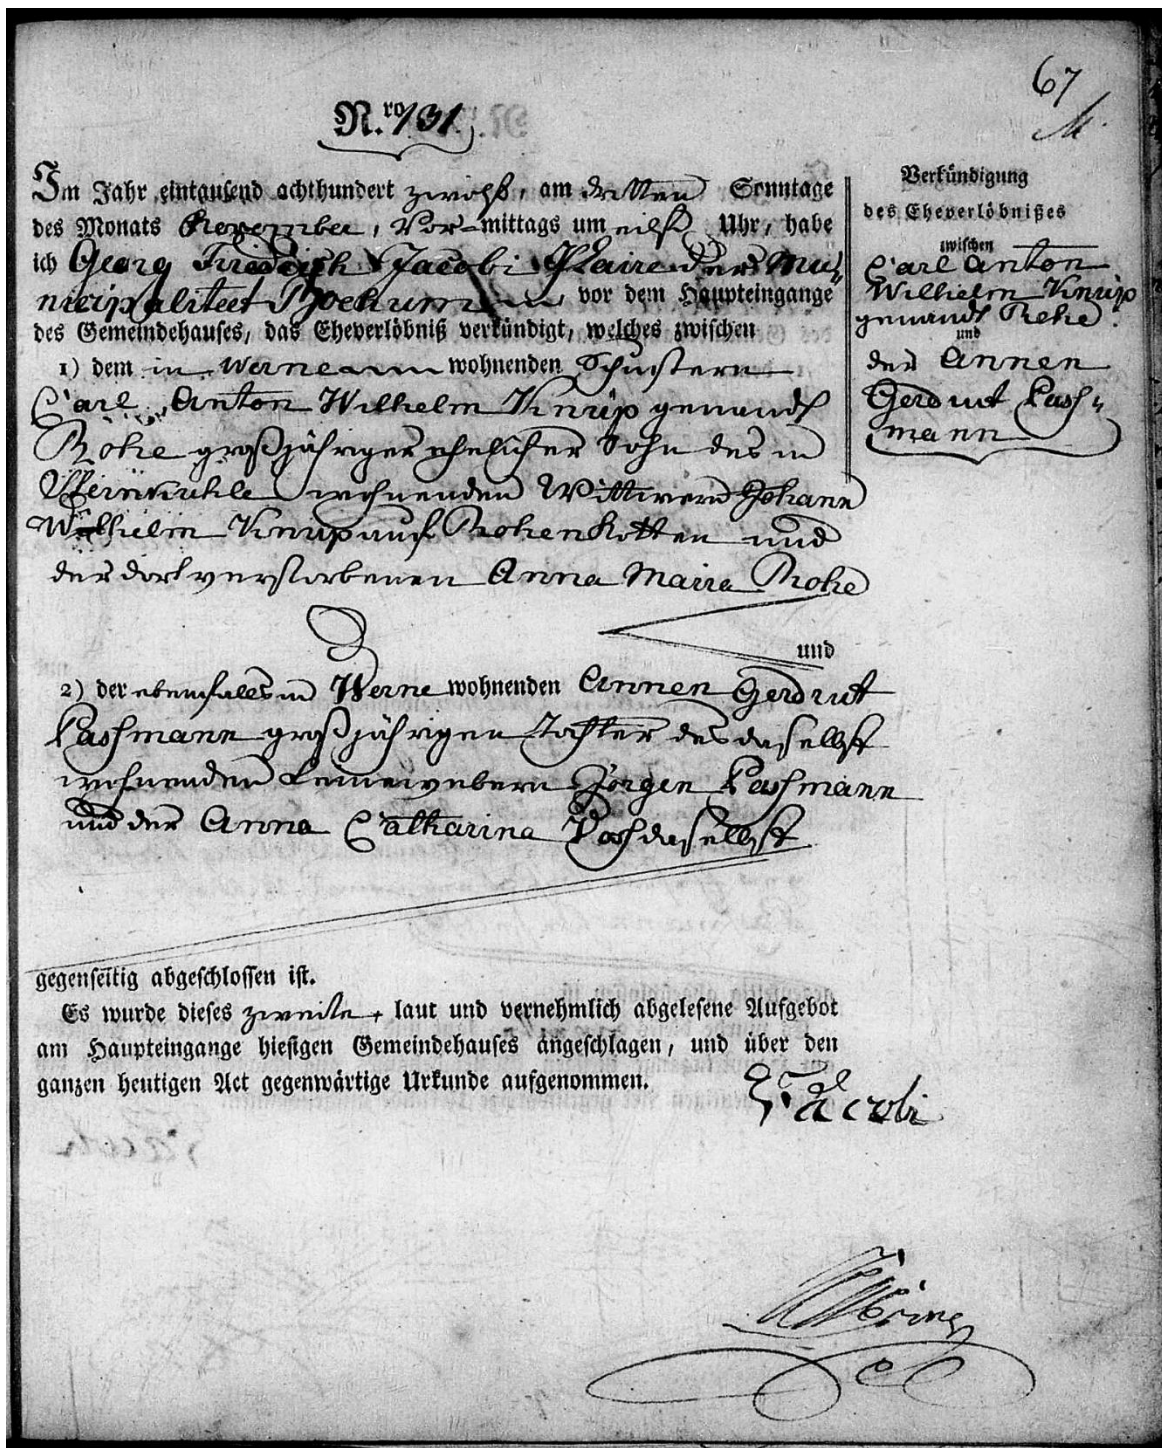 67
N.ro 131.
Im Jahr eintausend achthundert zwölf, am dritten Sonntage
des Monats November, Vor-mittags um eilf Uhr, habe
ich Georg Friedrich Jacobi Maire der Mu-
nicipalitaet Bochum vor dem Haupteingange
des Gemeindehauses, das Eheverlöbniß verkündigt, welches zwischen
1) dem in Werne wohnenden Schustern
Carl Anton Wilhelm Knüp genandt
Rohe großjähriger ehelicher Sohn des in
wohnenden Wittwern Johann
Wilhelm Knüp auf Rohenkotten und
der dort verstorbenen Anna Maria Rohe
und
2) der ebenfalls in Werne wohnenden Annen Gerdrut
Passmann großjährigen Tochter des daselbst
wohnenden Leinewebern Jörgen Passmann
und der Anna Catharina Voss daselbst
gegenseitig abgeschlossen ist.
Es wurde dieses zweite, laut und vernehmlich abgelesene Aufgebot
am Haupteingange hiesigen Gemeindehauses angeschlagen, und über den
ganzen heutigen Act gegenwärtige Urkunde aufgenommen.
Jacobi
Verkündigung
des Eheverlöbnißes
zwischen
Carl Anton
Wilhelm Knüp
genandt Rohe
und
der Annen
Gerdrut Pass-
mann